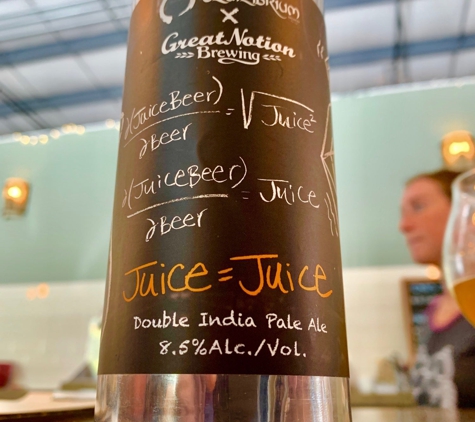 ×
Great Notion
Brewing
∂(JuiceBeer)
/∂Beer = √Juice²
∂(JuiceBeer)
/∂Beer = Juice
Juice = Juice
Double India Pale Ale
8.5%Alc./Vol.